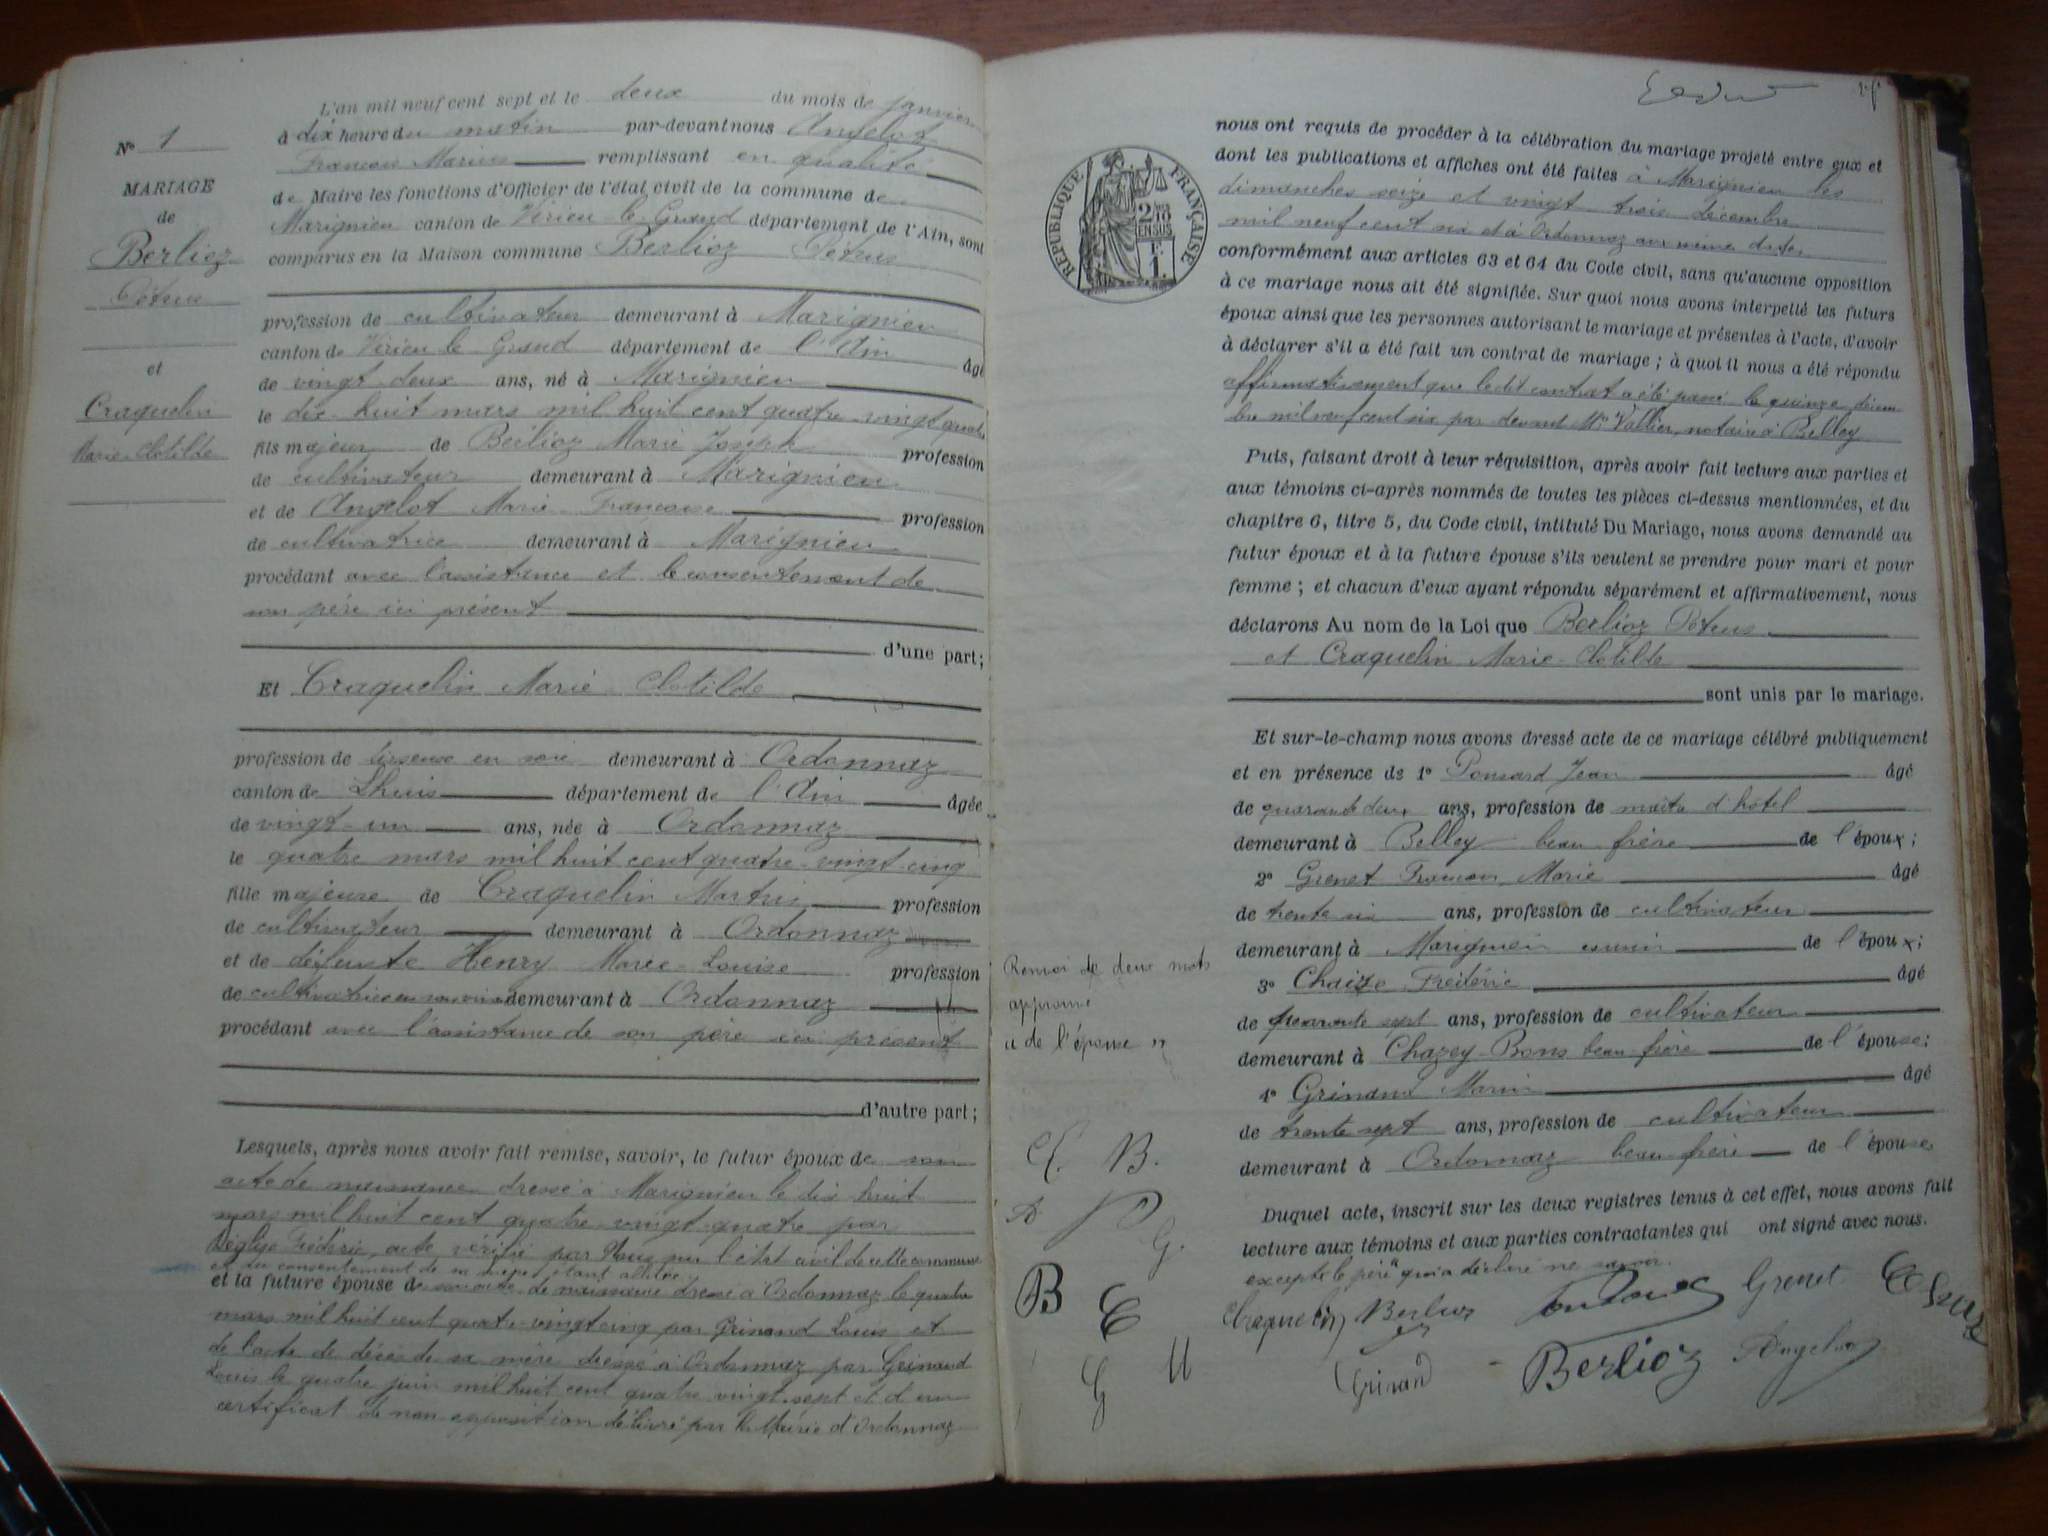 L'an mil neuf cent sept et le deux du mois de janvier
N° 1
à dix heure du matin par-devant nous Angelot
François Marius remplissant en qualité
MARIAGE
de Maire les fonctions d'Officier de l'état civil de la commune de
de
Marignieu canton de Virieu-le-Grand département de l'Ain, sont
Berlioz
comparus en la Maison commune Berlioz Pétrus
Pétrus
profession de cultivateur demeurant à Marignieu
canton de Virieu le Grand département de l'Ain âgé
et
de vingt-deux ans, né à Marignieu
Craquelin
le dix-huit mars mil huit cent quatre-vingt quatre
Marie-Clotilde
fils majeur de Berlioz Marie Joseph profession
de cultivateur demeurant à Marignieu
et de Angelot Marie Françoise profession
de cultivatrice demeurant à Marignieu
procédant avec l'assistance et le consentement de
son père ici présent
d'une part;
Et Craquelin Marie-Clotilde
profession de tisseuse en soie demeurant à Ordonnaz
canton de Lhuis département de l'Ain âgée
de vingt-un ans, née à Ordonnaz
le quatre mars mil huit cent quatre-vingt-cinq
fille majeure de Craquelin Martin profession
de cultivateur demeurant à Ordonnaz
et de défunte Henry Marie-Louise profession
de cultivatrice en son vivant demeurant à Ordonnaz
procédant avec l'assistance de son père ici présent
d'autre part;
Lesquels, après nous avoir fait remise, savoir, le futur époux de son
acte de naissance dressé à Marignieu le dix huit
mars mil huit cent quatre-vingt-quatre par
Frédéric, acte vérifié par Nous sur l'état civil de cette commune
et du consentement de sa
et la future épouse de son acte de naissance dressé à Ordonnaz le quatre
mars mil huit cent quatre-vingt cinq par Grinand Louis et
de l'acte de décès de sa mère dressé à Ordonnaz par Grinand
Louis le quatre juin mil huit cent quatre vingt-sept et d'un
certificat de non opposition délivré par la Mairie d'Ordonnaz
RÉPUBLIQUE FRANÇAISE
nous ont requis de procéder à la célébration du mariage projeté entre eux et
dont les publications et affiches ont été faites à Marignieu les
dimanches seize et vingt trois décembre
mil neuf cent six et à Ordonnaz aux mêmes dates
conformément aux articles 63 et 64 du Code civil, sans qu'aucune opposition
à ce mariage nous ait été signifiée. Sur quoi nous avons interpellé les futurs
époux ainsi que les personnes autorisant le mariage et présentes à l'acte, d'avoir
à déclarer s'il a été fait un contrat de mariage ; à quoi il nous a été répondu
affirmativement que ledit contrat a été passé le quinze décem
bre mil neuf cent six par devant Me Vallier, notaire à Belley
Puis, faisant droit à leur réquisition, après avoir fait lecture aux parties et
aux témoins ci-après nommés de toutes les pièces ci-dessus mentionnées, et du
chapitre 6, titre 5, du Code civil, intitulé Du Mariage, nous avons demandé au
futur époux et à la future épouse s'ils veulent se prendre pour mari et pour
femme ; et chacun d'eux ayant répondu séparément et affirmativement, nous
déclarons Au nom de la Loi que Berlioz Pétrus
et Craquelin Marie-Clotilde
sont unis par le mariage.
Et sur-le-champ nous avons dressé acte de ce mariage célébré publiquement
et en présence de 1° Ponsard Jean âgé
de quarante deux ans, profession de maître d'hôtel
demeurant à Belley beau frère de l'époux;
2° Grenet François Marie âgé
de trente six ans, profession de cultivateur
demeurant à Marignieu cousin de l'époux;
3° Chaize Frédéric âgé
de quarante sept ans, profession de cultivateur
demeurant à Chazey-Bons beau frère de l'épouse;
4° Grinand Marin âgé
de trente sept ans, profession de cultivateur
demeurant à Ordonnaz beau frère de l'épouse
Duquel acte, inscrit sur les deux registres tenus à cet effet, nous avons fait
lecture aux témoins et aux parties contractantes qui ont signé avec nous.
excepté le père qui a déclaré ne savoir.
Renvoi de deux mots
approuvé
" de l'épouse "
C. B.
A P
G.
B C
G M
Craquelin Berlioz Grenet
Grinand Berlioz Angelot